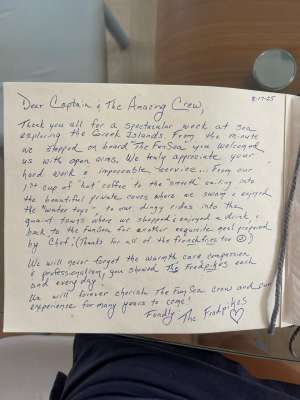 8-17-25
Dear Captain & The Amazing Crew,
Thank you all for a spectacular week at sea
exploring the Greek Islands. From the minute
we stepped on board "The FunSea" you welcomed
us with open arms. We truly appreciate your
hard work & impeccable service... From our
1st cup of "hot" coffee to the "smooth" sailing into
the beautiful private coves where we swam & enjoyed
the "water toys" to our dingy rides into the
quaint towns where we shopped & enjoyed a drink,
back to the FunSea for another exquisite meal prepared
by Chef. (Thanks for all of the frenchfries too ☺)
We will never forget the warmth care compassion
& professionalism, you showed The Fredpikes each
and every day!
We will forever cherish The FunSea Crew and our
experience for many years to come!
Fondly The Fredpikes
♡